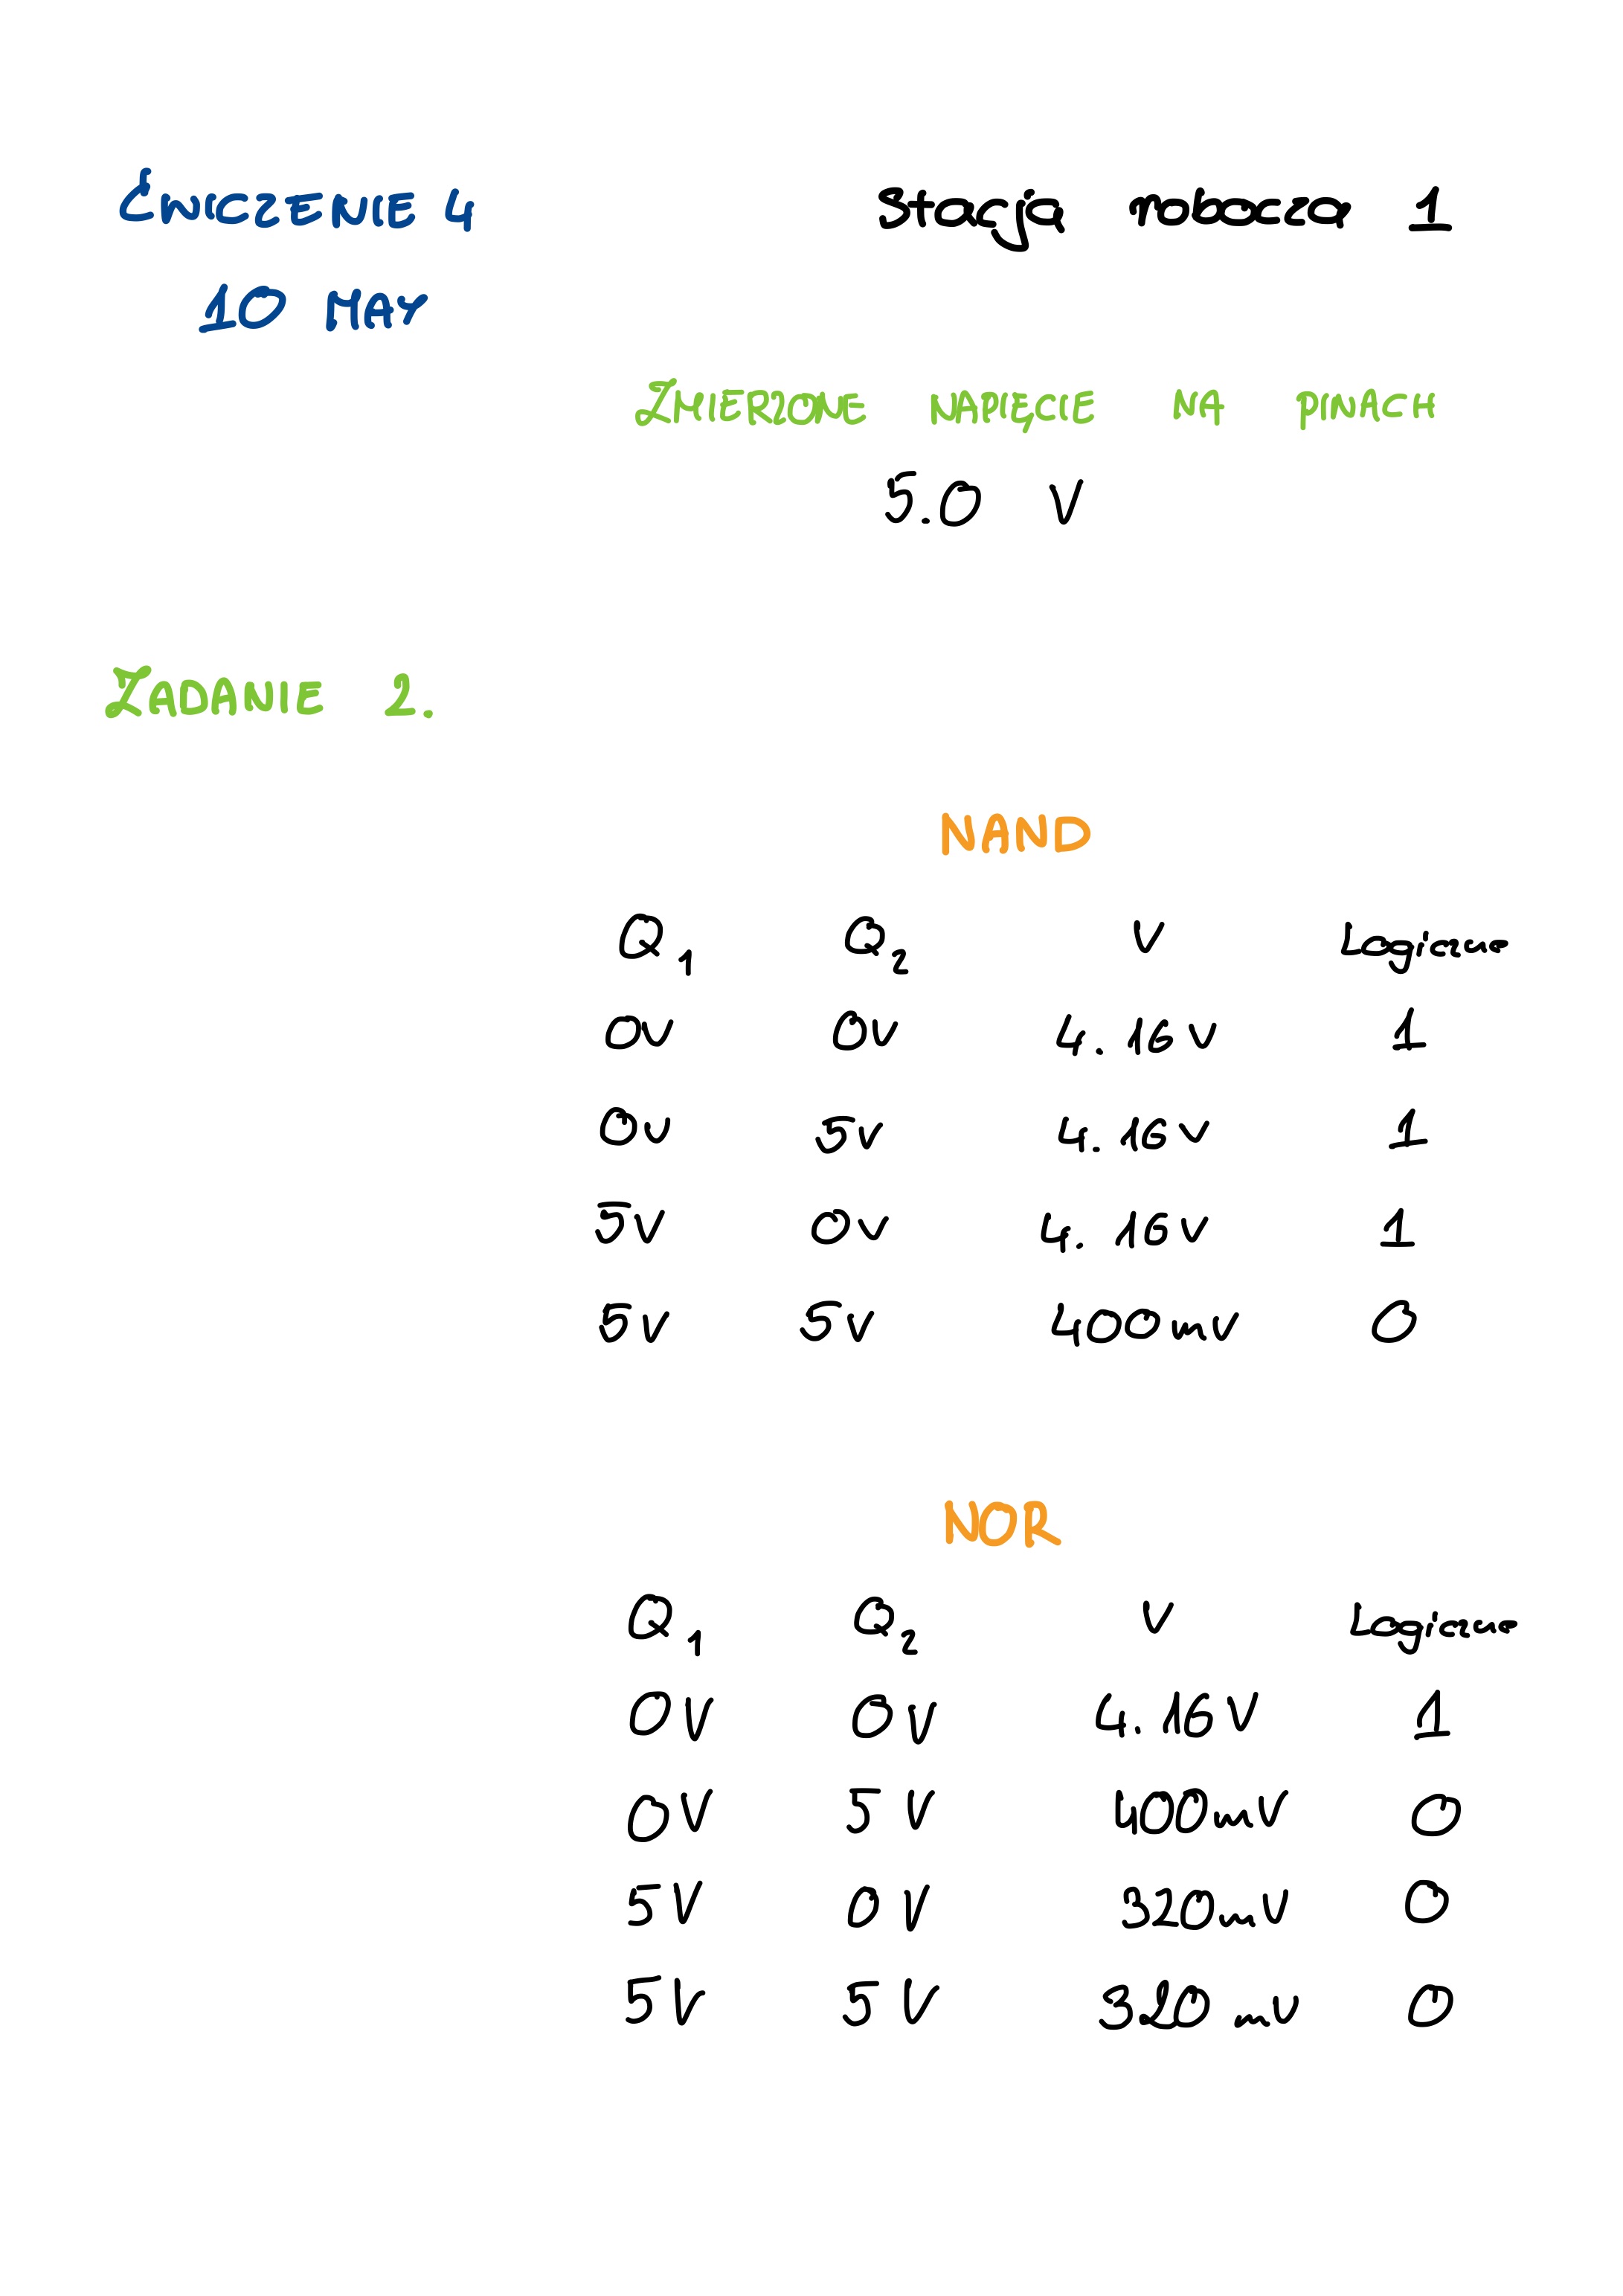 Ćwiczenie 4
Stacja robocza 1
10 MAY
Zmierzone napięcie na pinach
5.0 V
Zadanie 2.
NAND
Q1 Q2 V Logiczne
0V 0V 4.16V 1
0V 5V 4.16V 1
5V 0V 4.16V 1
5V 5V 400mV 0
NOR
Q1 Q2 V Logiczne
0V 0V 4.16V 1
0V 5V 400mV 0
5V 0V 320mV 0
5V 5V 320mV 0